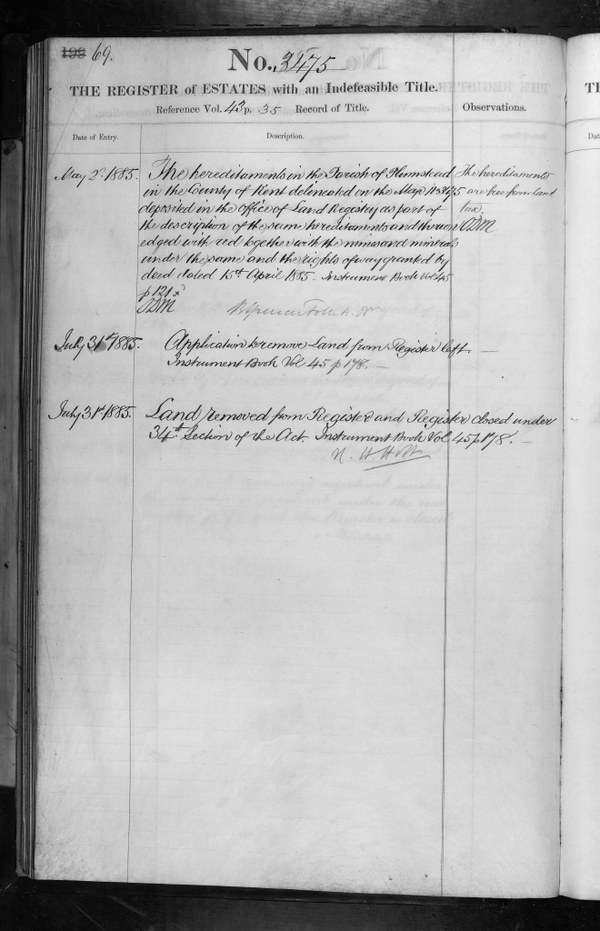 198 69.
No. 3475
THE REGISTER of ESTATES with an Indefeasible Title.
Reference Vol. 43 p. 35 Record of Title.
Observations.
Date of Entry.
Description.
May 2d 1885.
The hereditaments in the Parish of Plumstead
in the County of Kent delineated on the Map No 3475
deposited in the Office of Land Registry as part of
the description of the same hereditaments and thereon
edged with red together with the mines and minerals
under the same and the rights of way granted by
deed dated 15th April 1885. Instrument Book Vol 45
p 121
ODM
The hereditaments
are free from land
tax.
ODM
July 31st 1885.
Application to remove Land from Register left
Instrument Book Vol 45 p 178. —
July 31st 1885.
Land removed from Register and Register closed under
34th Section of the Act. Instrument Book Vol 45 p 178. —
THE
Dat